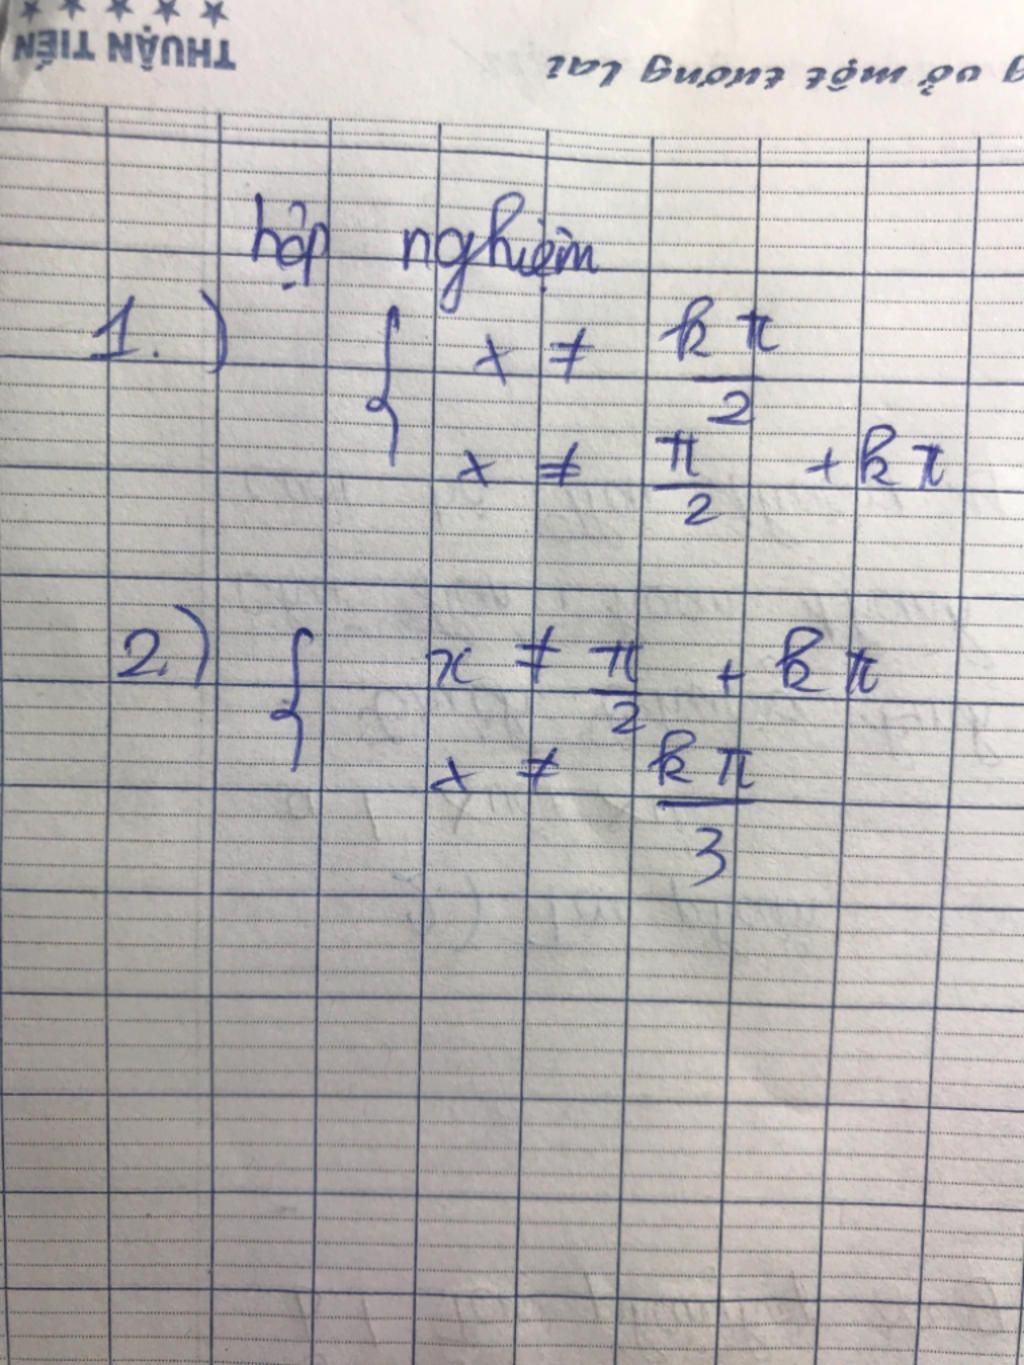 THUẬN TIẾN
vở một tương lai
hợp nghiệm
1.) { x ≠ kπ/2
x ≠ π/2 + kπ
2.) { x ≠ π/2 + kπ
x ≠ kπ/3